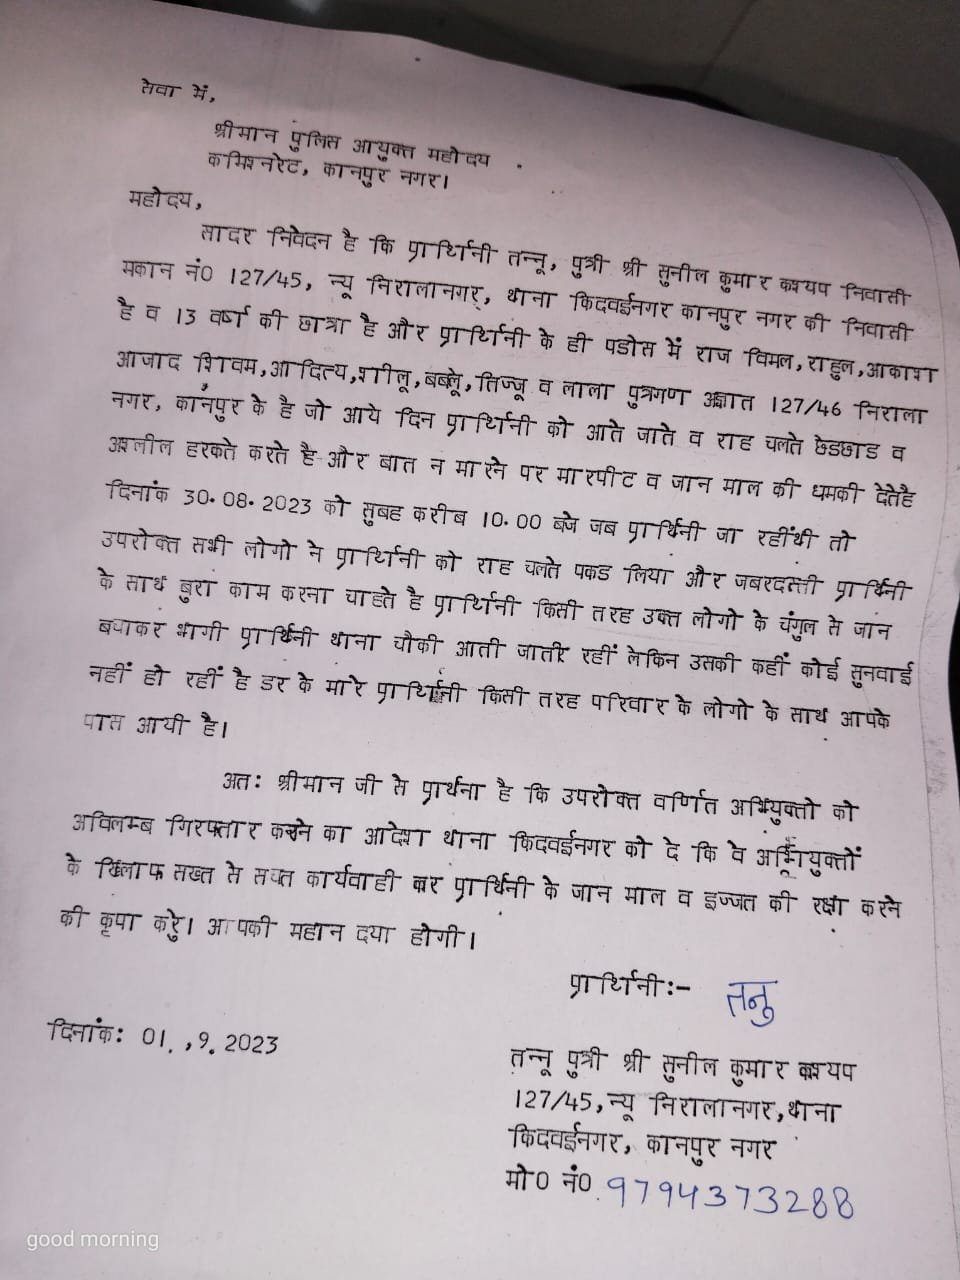 सेवा में,
श्रीमान पुलिस आयुक्त महोदय
कमिश्नरेट, कानपुर नगर।
महोदय,
सादर निवेदन है कि प्रार्थिनी तन्नू, पुत्री श्री सुनील कुमार कश्यप निवासी
मकान नं0 127/45, न्यू निरालानगर, थाना किदवईनगर कानपुर नगर की निवासी
है व 13 वर्ष की छात्रा है और प्रार्थिनी के ही पडोस में राज विमल, राहुल, आकाश
आजाद शिवम, आदित्य, शीलू, बब्लू, तिज्जू व लाला पुत्रगण अज्ञात 127/46 निराला
नगर, कानपुर के है जो आये दिन प्रार्थिनी को आते जाते व राह चलते छेडछाड व
अश्लील हरकते करते है और बात न मारने पर मारपीट व जान माल की धमकी देतेहै
दिनांक 30.08.2023 को सुबह करीब 10.00 बजे जब प्रार्थिनी जा रहींथी तो
उपरोक्त सभी लोगो ने प्रार्थिनी को राह चलते पकड लिया और जबरदस्ती प्रार्थिनी
के साथ बुरा काम करना चाहते है प्रार्थिनी किसी तरह उक्त लोगो के चंगुल से जान
बचाकर भागी प्रार्थिनी थाना चौकी आती जाती रहीं लेकिन उसकी कहीं कोई सुनवाई
नहीं हो रहीं है डर के मारे प्रार्थिनी किसी तरह परिवार के लोगो के साथ आपके
पास आयी है।
अतः श्रीमान जी से प्रार्थना है कि उपरोक्त वर्णित अभियुक्तो को
अविलम्ब गिरफ्तार करने का आदेश थाना किदवईनगर को दे कि वे अभियुक्तों
के खिलाफ सख्त से सख्त कार्यवाही कर प्रार्थिनी के जान माल व इज्जत की रक्षा करने
की कृपा करे। आपकी महान दया होगी।
प्रार्थिनी:- तनु
दिनांक: 01.,9.2023
तन्नू पुत्री श्री सुनील कुमार कश्यप
127/45, न्यू निरालानगर, थाना
किदवईनगर, कानपुर नगर
मो0 नं0. 9794373288
good morning